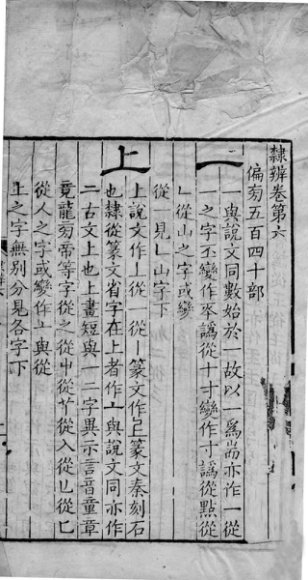 隸辨卷第六
偏旁五百四十部
一
一與說文同數始於一故以一爲耑亦作一從
一之字丕變作㔻譌從十寸變作寸譌從點從
乚從山之字或變
從一見乚山字下
上
上說文作丄從一從丨篆文作𠄞篆文秦刻石
也隸從篆文省字在上者作亠與說文同亦作
二古文上也上畫短與一二字異示言音童章
竟龍旁帝等字從之從屮從丫從入從乚從匕
從人之字或變作亠與從
丄之字無別分見各字下